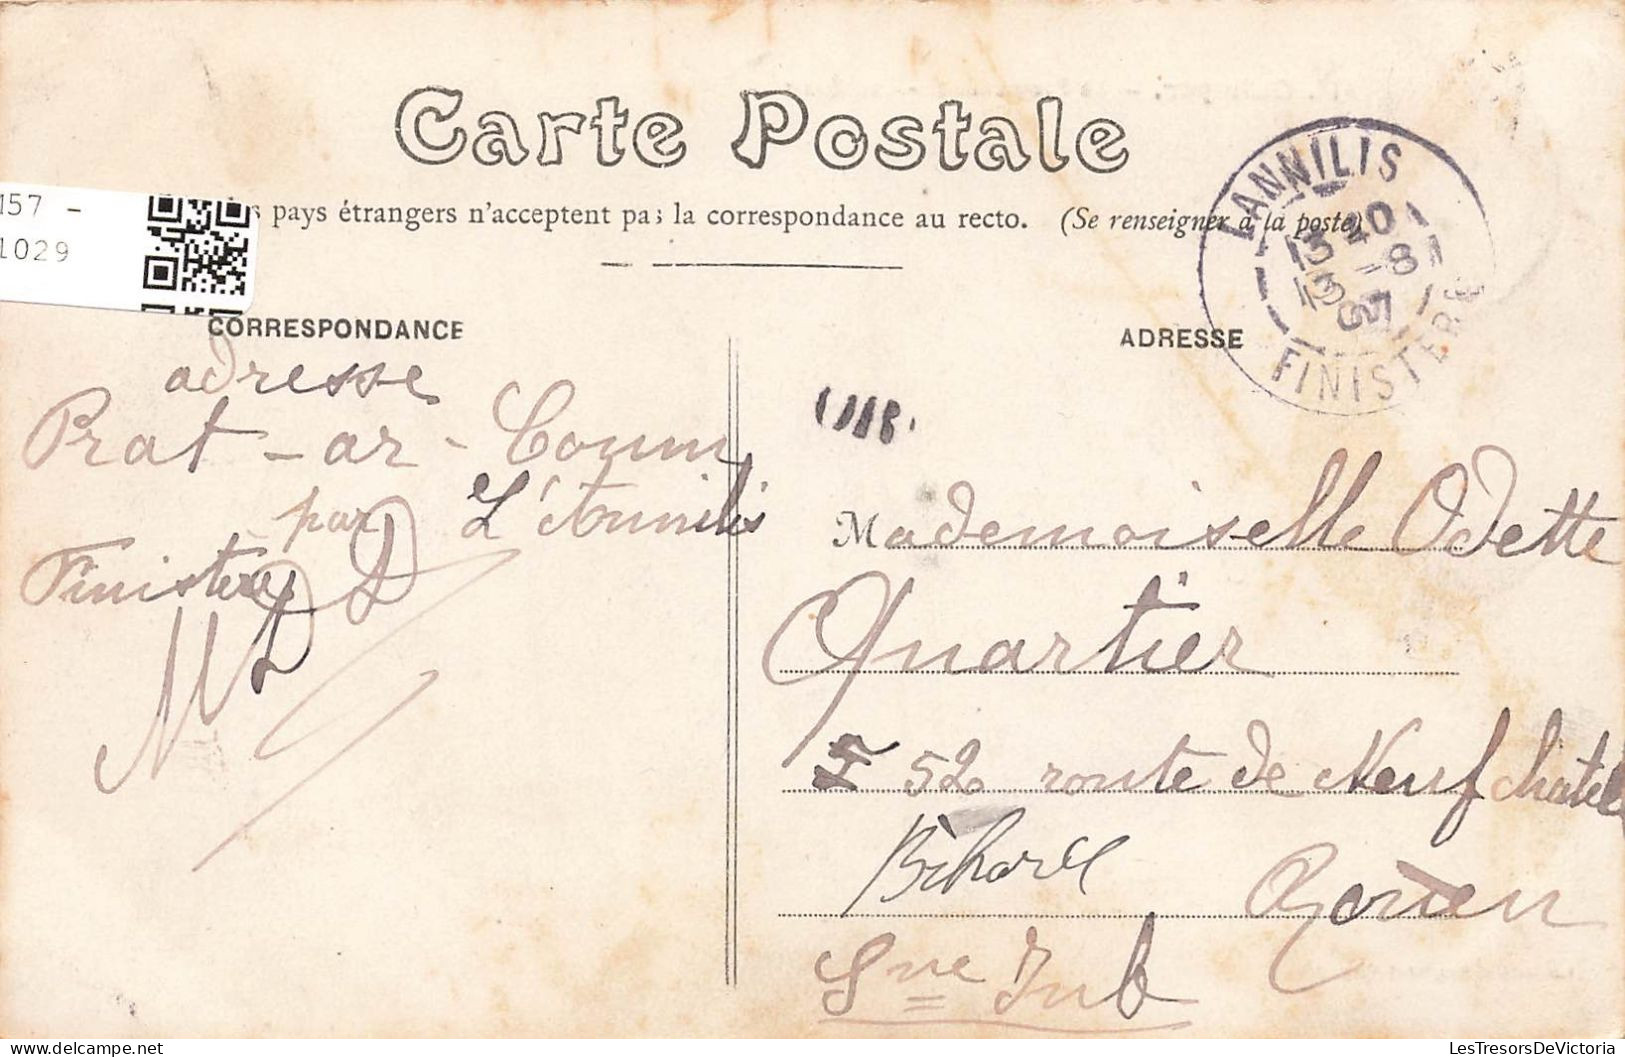 Carte Postale
157 -
1029
pays étrangers n'acceptent pas la correspondance au recto. (Se renseigner à la poste)
LANNILIS
13 20
13 -8
07
FINISTERE
CORRESPONDANCE
ADRESSE
adresse
Prat-ar-Coum
par L'Annilis
Finistere
Mademoiselle Odette
Quartier
52 route de Neufchatel
Bihorel Rouen
Sne Inf
LesTresorsDeVictoria